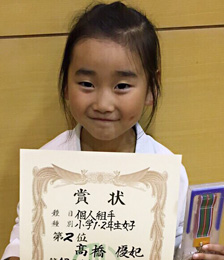 賞状
種目 個人組手
種別 小学1・2年生女子
第2位
髙橋 優妃